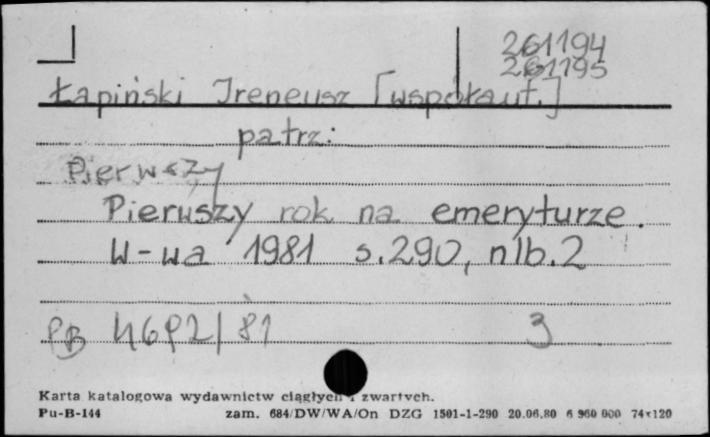 261194
261195
Łapiński Ireneusz [współaut.]
patrz:
Pierwszy
Pierwszy rok na emeryturze.
W-wa 1981 s.290, nlb.2
PB 4692/81 3
Karta katalogowa wydawnictw ciągłych i zwartych.
Pu-B-144 zam. 684/DW/WA/On DZG 1501-1-290 20.06.80 6 960 000 74×120